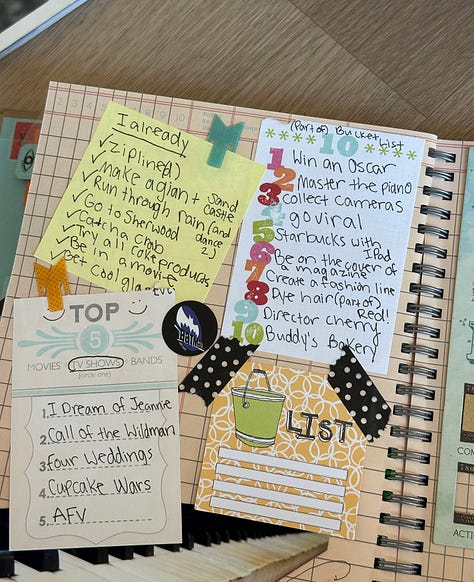 I already
✓ziplined)
✓make a giant sand castle
✓Run through rain (and dance 2)
✓Go to Sherwood
✓Catch a crab
✓Try all cake products
✓Be in a movie
✓Get cool glasses
(Part of) Bucket List
****10****
1 Win an Oscar
2 Master the piano
3 Collect cameras
4 go viral
5 Starbucks with IPad
6 Be on the cover of a magazine
7 Create a fashion line
8 Dye hair (part of) Red!
9 Director cherry
10 Buddy's Bakery
TOP
5
MOVIES TV SHOWS BANDS
(circle one)
1. I Dream of Jeannie
2. Call of the Wildman
3. Four Weddings
4. Cupcake Wars
5. AFV
LIST
ACTI